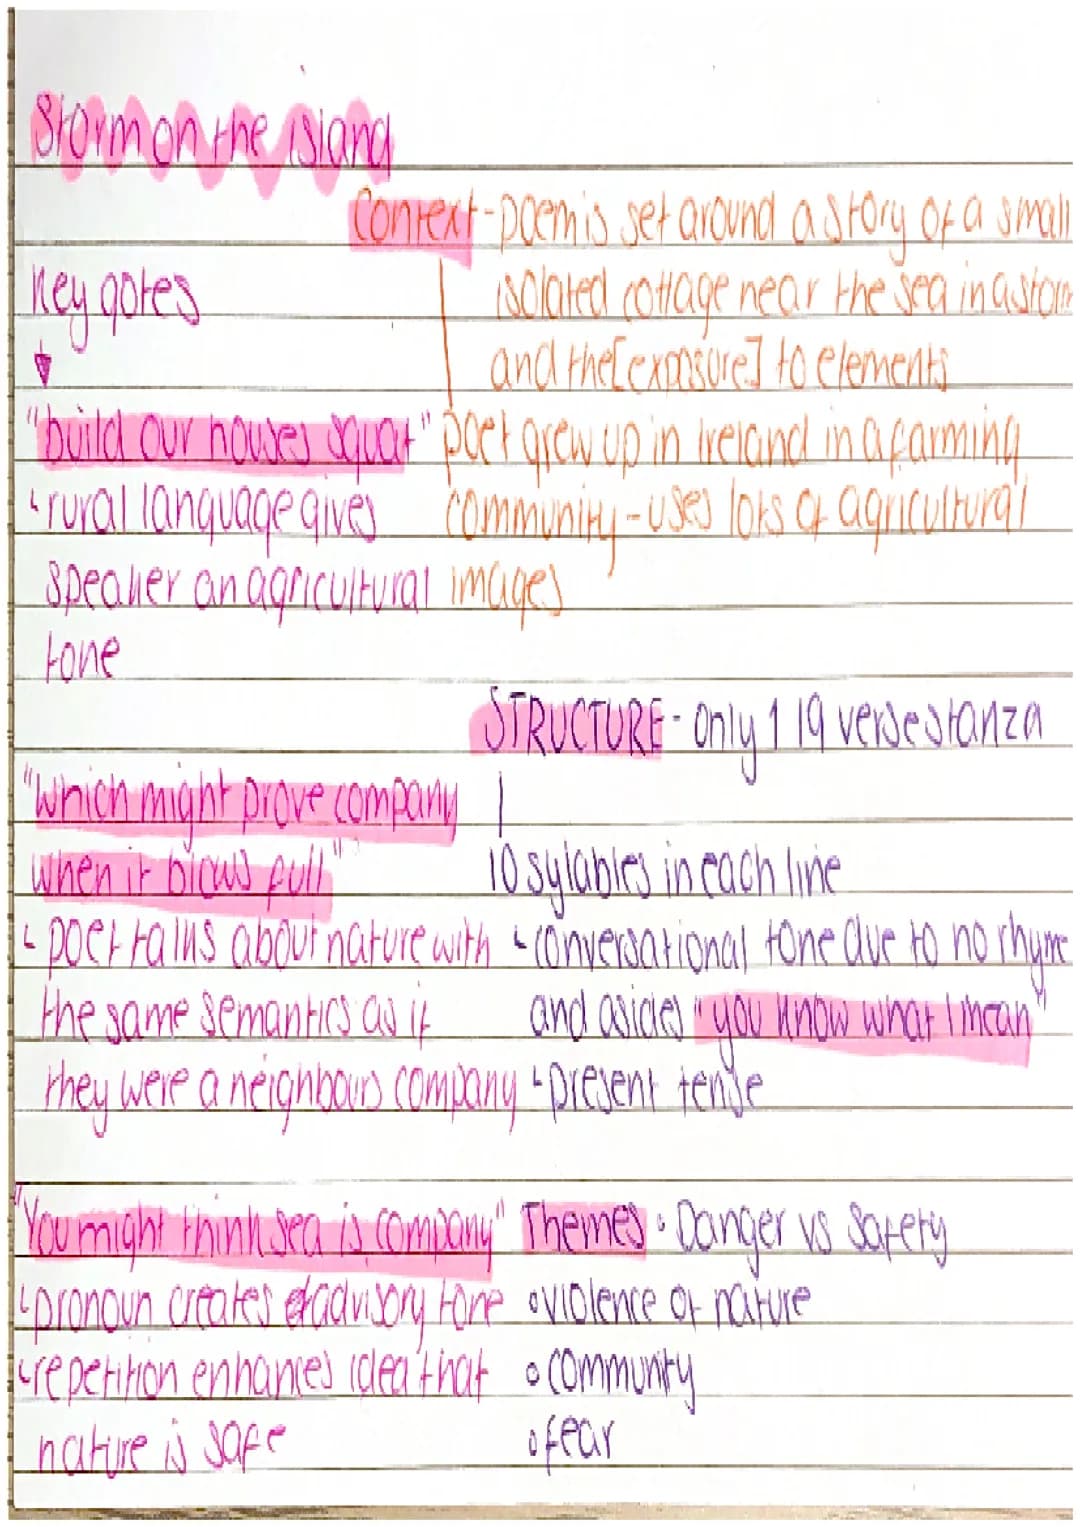 Storm on the island
Context - poem is set around a story of a small
isolated cottage near the sea in a storm
and the [exposure] to elements
poet grew up in Ireland in a farming
community - uses lots of agricultural
images
Key qotes
"build our houses squat"
rural language gives
speaker an agricultural
tone
STRUCTURE - only 1 19 verse stanza
10 sylables in each line
conversational tone due to no rhyme
and asides "you know what I mean"
present tense
"which might prove company
when it blows full"
poet talks about nature with
the same semantics as if
they were a neighbours company
"You might think sea is company"
pronoun creates advisory tone
repetition enhances idea that
nature is safe
Themes • Danger vs Safety
• violence of nature
• community
• fear